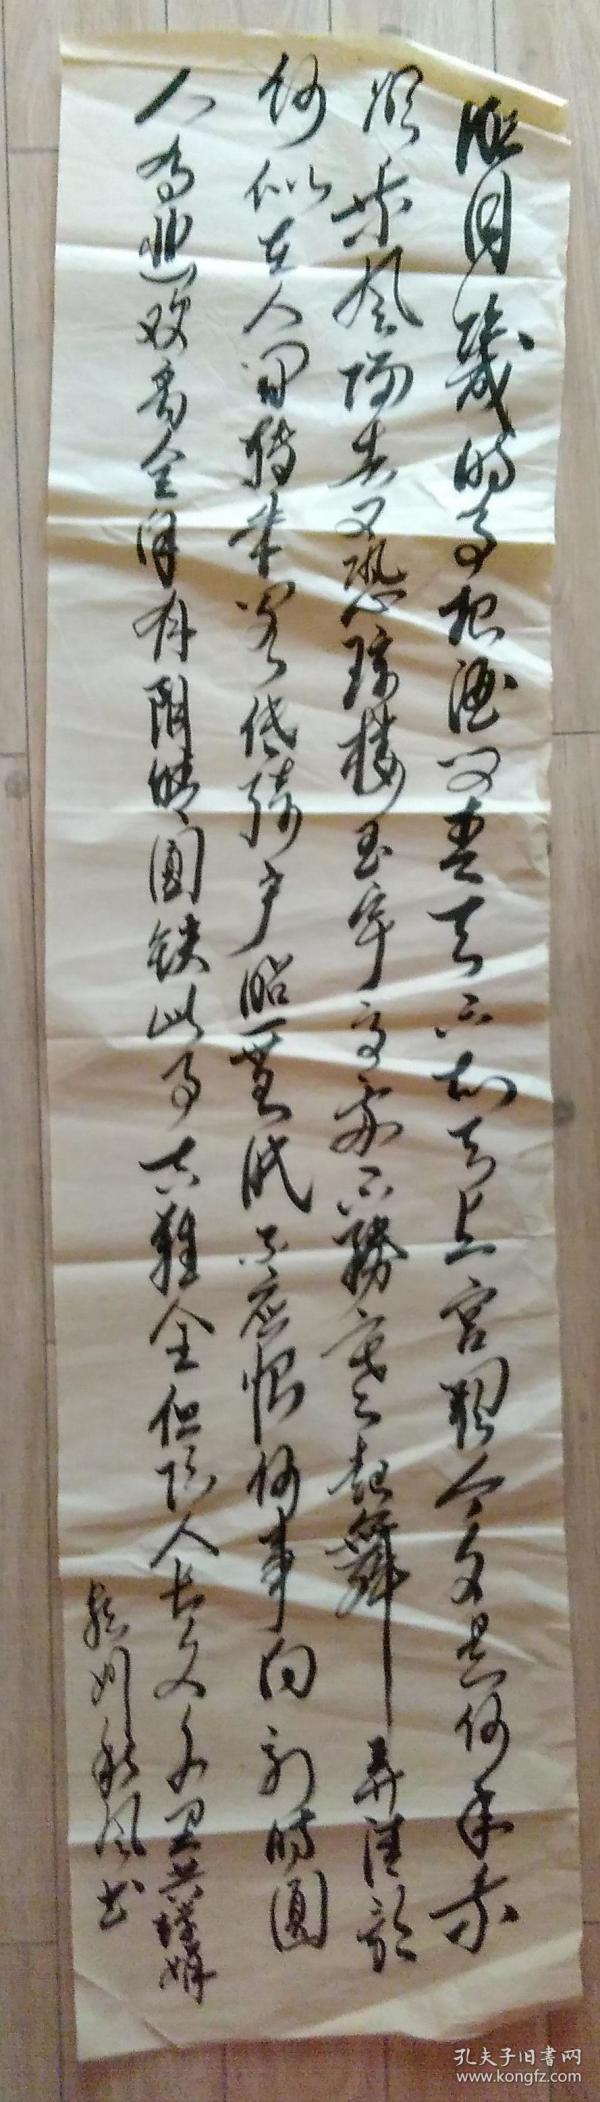 明月幾时有把酒问青天不知天上宫闕今夕是何年我
欲乘风归去又恐琼楼玉宇高处不勝寒起舞弄清影
何似在人间转朱阁低绮户照無眠不应恨何事向别时圆
人有悲欢离合月有阴晴圆缺此事古难全但愿人长久千里共嬋娟
秋风书
孔夫子旧书网
www.kongfz.com